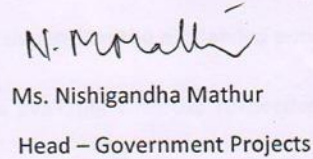 Ms. Nishigandha Mathur
Head – Government Projects